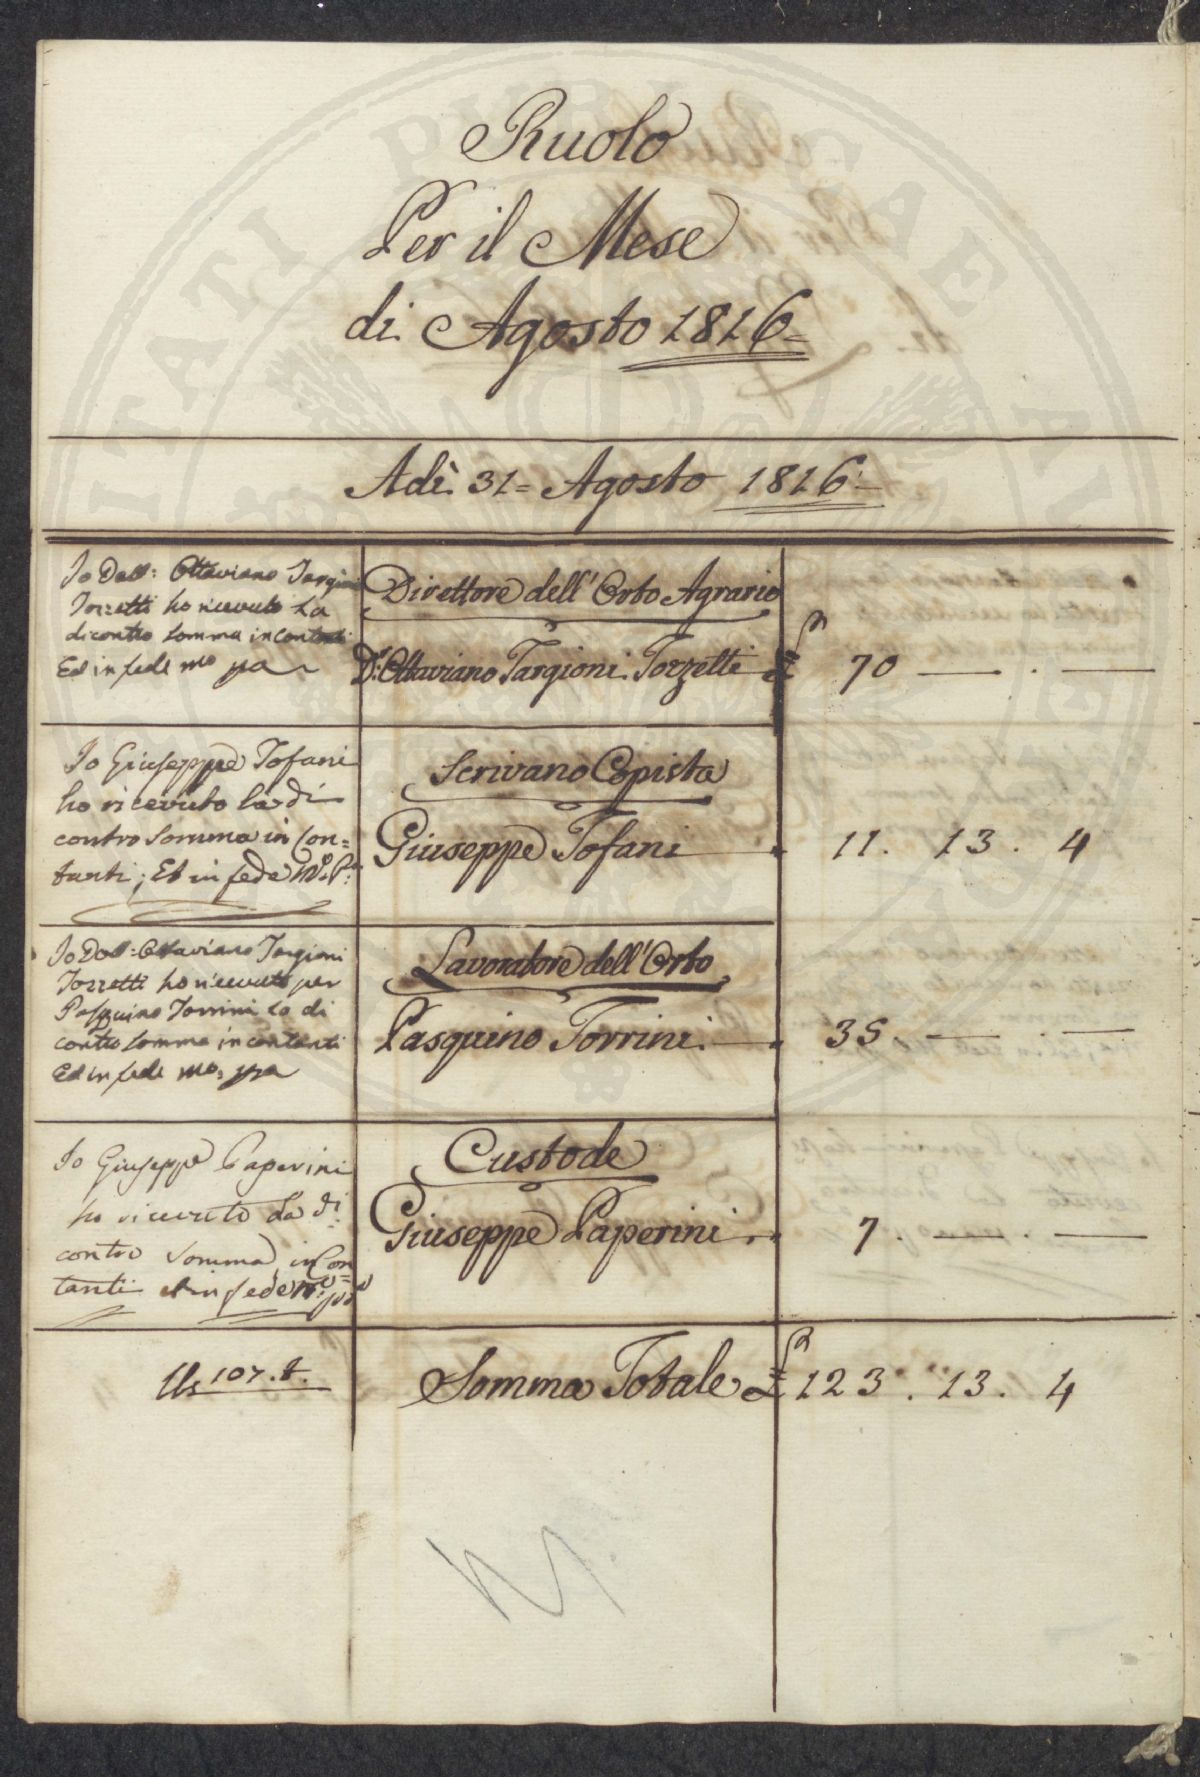 Ruolo
Per il Mese
di Agosto 1816=
Adì 31= Agosto 1816=
Io Dott: Ottaviano Targioni
Tozzetti ho ricevuto la
dicontro somma in contanti
Ed in fede mo pa
Direttore dell'Orto Agrario
Dr. Ottaviano Targioni Tozzetti £ 70 — . —
Io Giuseppe Tofani
ho ricevuto la di
contro Somma in Con=
tanti; Et in fede Mo. Pa.
Scrivano Copista
Giuseppe Tofani 11. 13. 4
Io Dott: Ottaviano Targioni
Tozzetti ho ricevuto per
Pasquino Torrini la di
contro somma in contanti
Ed in fede mo. pa
Lavoratore dell'Orto
Pasquino Torrini. 35. — . —
Io Giuseppe Paperini
ho ricevuto La di
contro Somma in Con=
tanti et in fede Mo. pa
Custode
Giuseppe Paperini. 7. — . —
107.t.
Somma Totale £ 123. 13. 4